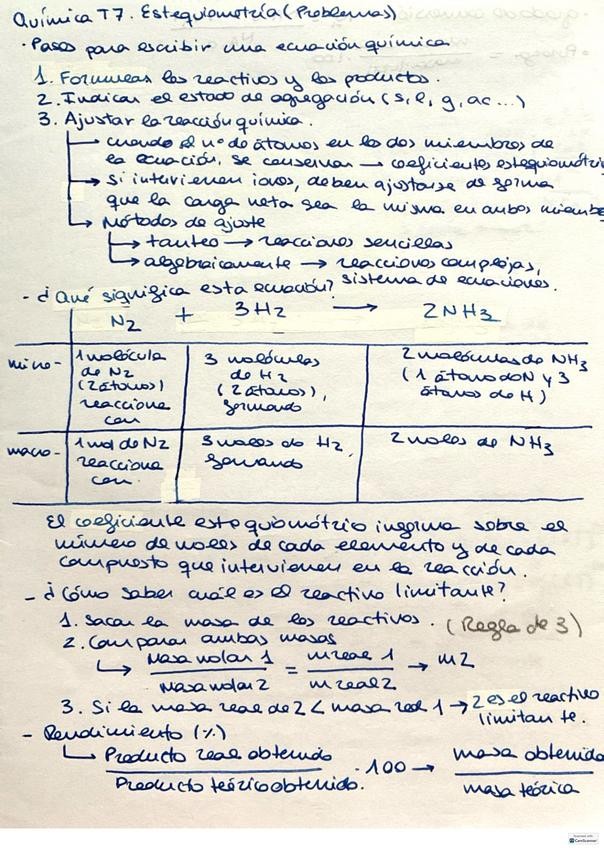 Química T7. Estequiometría (Problemas)
· Pasos para escribir una ecuación química
1. Formular los reactivos y los productos.
2. Indicar el estado de agregación (s, l, g, ac...)
3. Ajustar la reacción química.
→ cuando el nº de átomos en los dos miembros de
la ecuación, se conservan → coeficientes estequiométric
→ si intervienen iones, deben ajustarse de forma
que la carga neta sea la misma en ambos miemb
→ Métodos de ajuste
→ tanteo → reacciones sencillas
→ algebraicamente → reacciones complejas,
sistema de ecuaciones.
- ¿Qué significa esta ecuación?
N2 + 3H2 → 2NH3
micro-
1 molécula
de N2
(2 átomos)
reacciona
con
3 moléculas
de H2
(2 átomos),
formando
2 moléculas de NH3
(1 átomo de N y 3
átomos de H)
macro-
1 mol de N2
reacciona
con.
3 moles de H2,
formando
2 moles de NH3
El coeficiente estequiométrico informa sobre el
número de moles de cada elemento y de cada
compuesto que intervienen en la reacción.
- ¿Cómo saber cuál es el reactivo limitante?
1. Sacar la masa de los reactivos. (Regla de 3)
2. Comparar ambas masas
→ Masa molar 1 / Masa molar 2 = m real 1 / m real 2 → m2
3. Si la masa real de 2 < masa real 1 → 2 es el reactivo
limitante.
- Rendimiento (%)
→ Producto real obtenido / Producto teórico obtenido. · 100 → masa obtenida / masa teórica
Scanned with
CamScanner